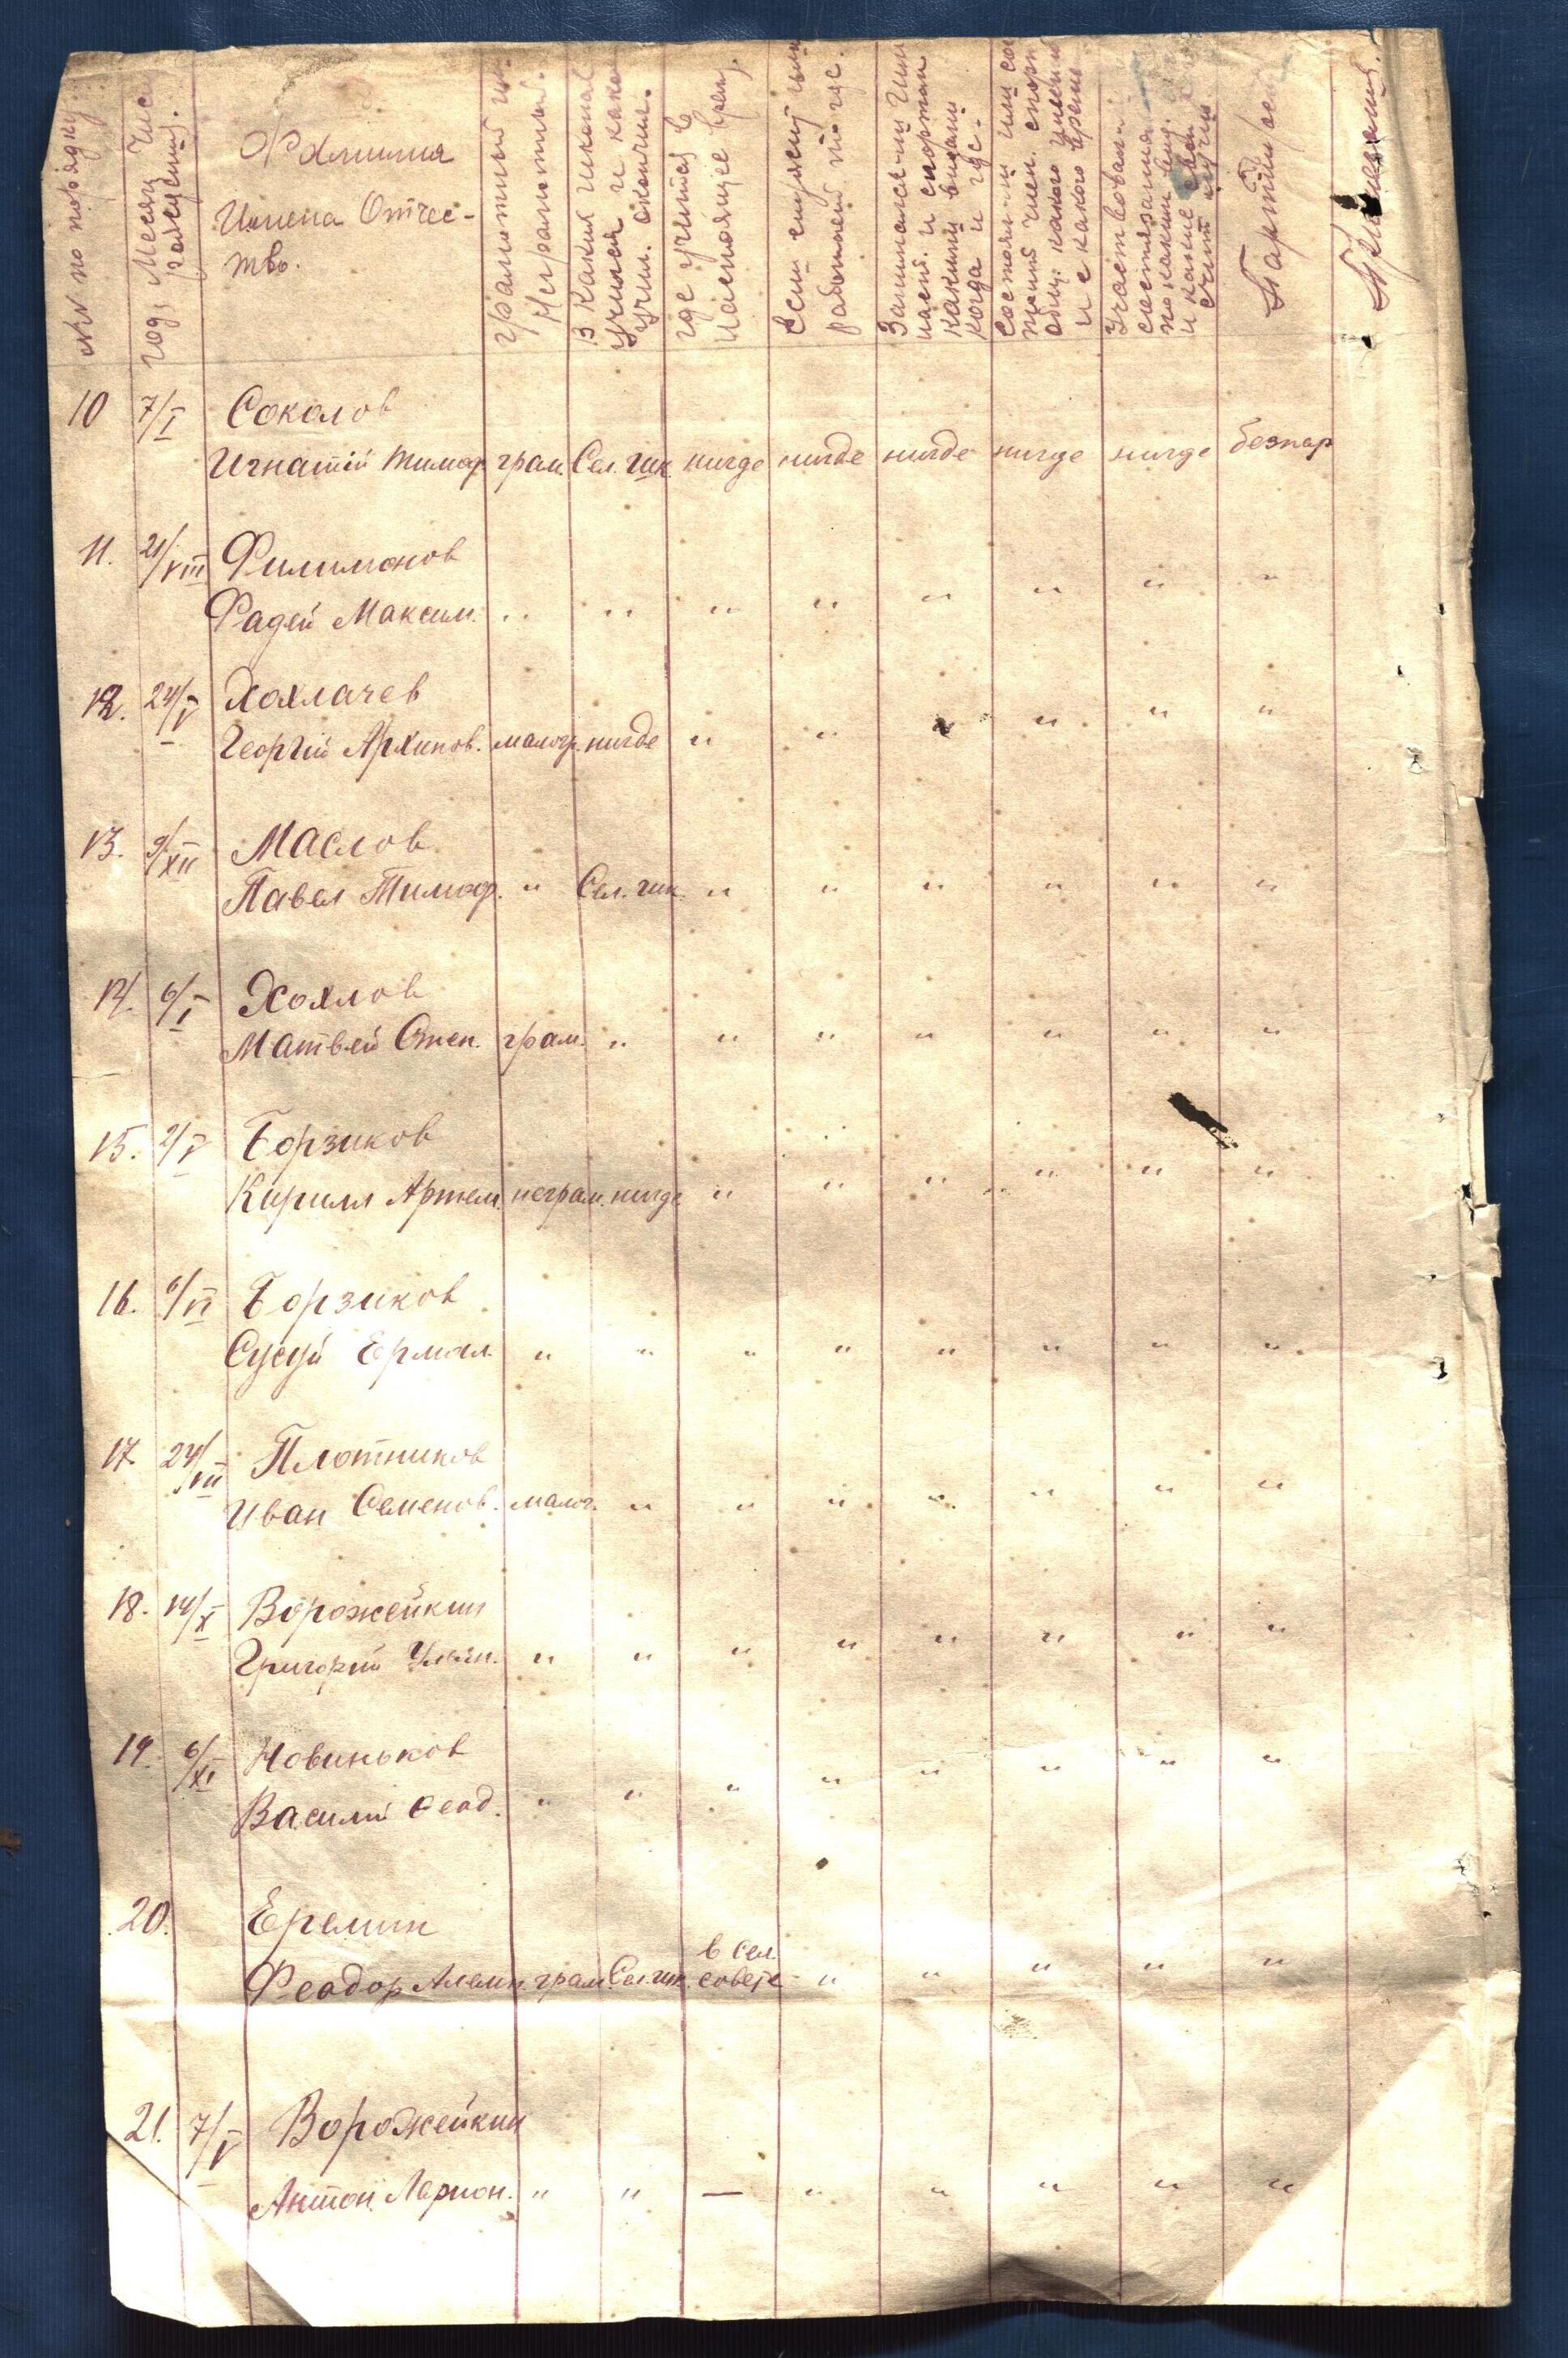 №№ по порядку
год, Месяц Числ
рождения.
Фамилия
Имена Отчес-
тво.
Грамотный или
Неграмотный.
В каких школах
учился и какое
учил. окончил.
где учится в
настоящее врем.
Если служит или
работает то где.
Занимался-ли Гим
наст. и спортом
какими видами
когда и где.
Состоял-ли или сос
тоит член. спорт
и с какого время
Участвовал
состязания
по каким вид.
и какие
Партийность
Примечания.
10 7/I Соколов
Игнатий Тимоф. грам. Сел. шк. нигде нигде нигде нигде нигде безпар
11. 21/VIII Филимонов
Фадей Максим. " " " " " " " "
12. 24/V Хохлачев
Георгий Архипов. малогр. нигде " " " " " "
13. 9/XII Маслов
Павел Тимоф. " Сел. шк. " " " " " "
14. 6/I Хохлов
Матвей Степ. грам. " " " " " " "
15. 2/V Борзиков
Кирилл Артем. неграм. нигде " " " " " "
16. 6/VI Борзиков
Сусуй Ермол. " " " " " " " "
17. 24/VIII Плотников
Иван Семенов. малог. " " " " " " "
18. 14/X Ворожейкин
Григорий Ульян. " " " " " " " "
19. 6/XI Новиньков
Василий Феод. " " " " " " " "
20. Еремин
в сел.
Феодор грам. Сел. шк. совете " " " " "
21. 7/V Ворожейкин
Антон Ларион. " " — " " " " "